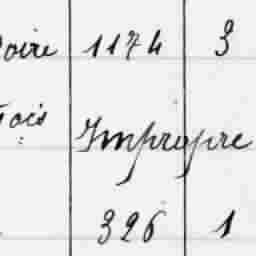 oire 1174 3
ois Impropre
326 1